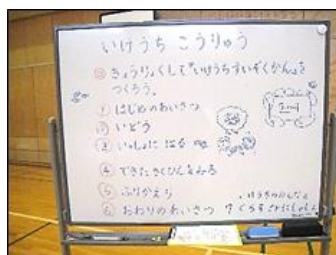 いけうち こうりゅう
◎ きょうりょくして『いけうちすいぞくかん』を
つくろう。
① はじめのあいさつ
② いどう
③ いっしょに はる
④ できたさくひんをみる
⑤ ふりかえり
⑥ おわりのあいさつ